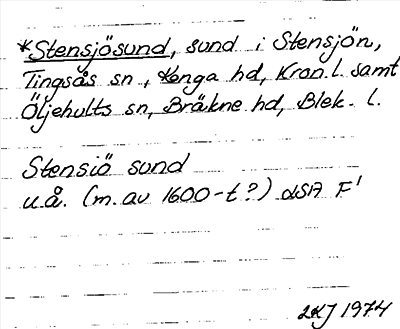 *Stensjösund, sund i Stensjön,
Tingsås sn, Konga hd, Kron. l. samt
Öljehults sn, Bräkne hd, Blek. l.
Stensiö sund
u.å. (m. av 1600-t?) dSA F1
1974